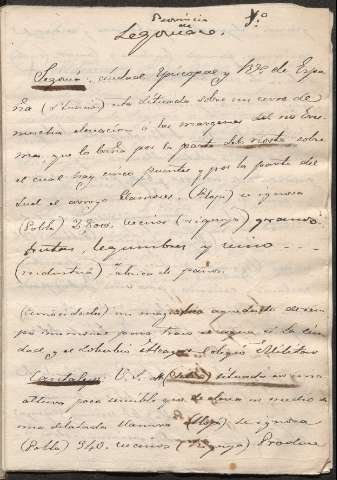 Provincia 1º
de
Segovia.
Segovia, ciudad Episcopal y de Espa
ña (situacion) esta situada sobre un cerro de
mucha elevacion á las margenes del rio Eres
ma, que la baña por la parte del norte sobre
el cual hay cinco puentes y por la parte del
sud el arroyo Clamores. se ignora
(Pobla) vecinos (riqueza) granos
frutas, legumbres y vino
(industria) fabrica de paños.
(curiosidades) un magnifico aqueducto de
por donde se traia el agua á la ciu
dad, y el Colegio Militar
Cantalejo V. S. de situado en una
altura poco sensible que se eleva en medio de
una dilatada llanura se ignora
(Pobla) 940. vecinos (riqueza) Produce